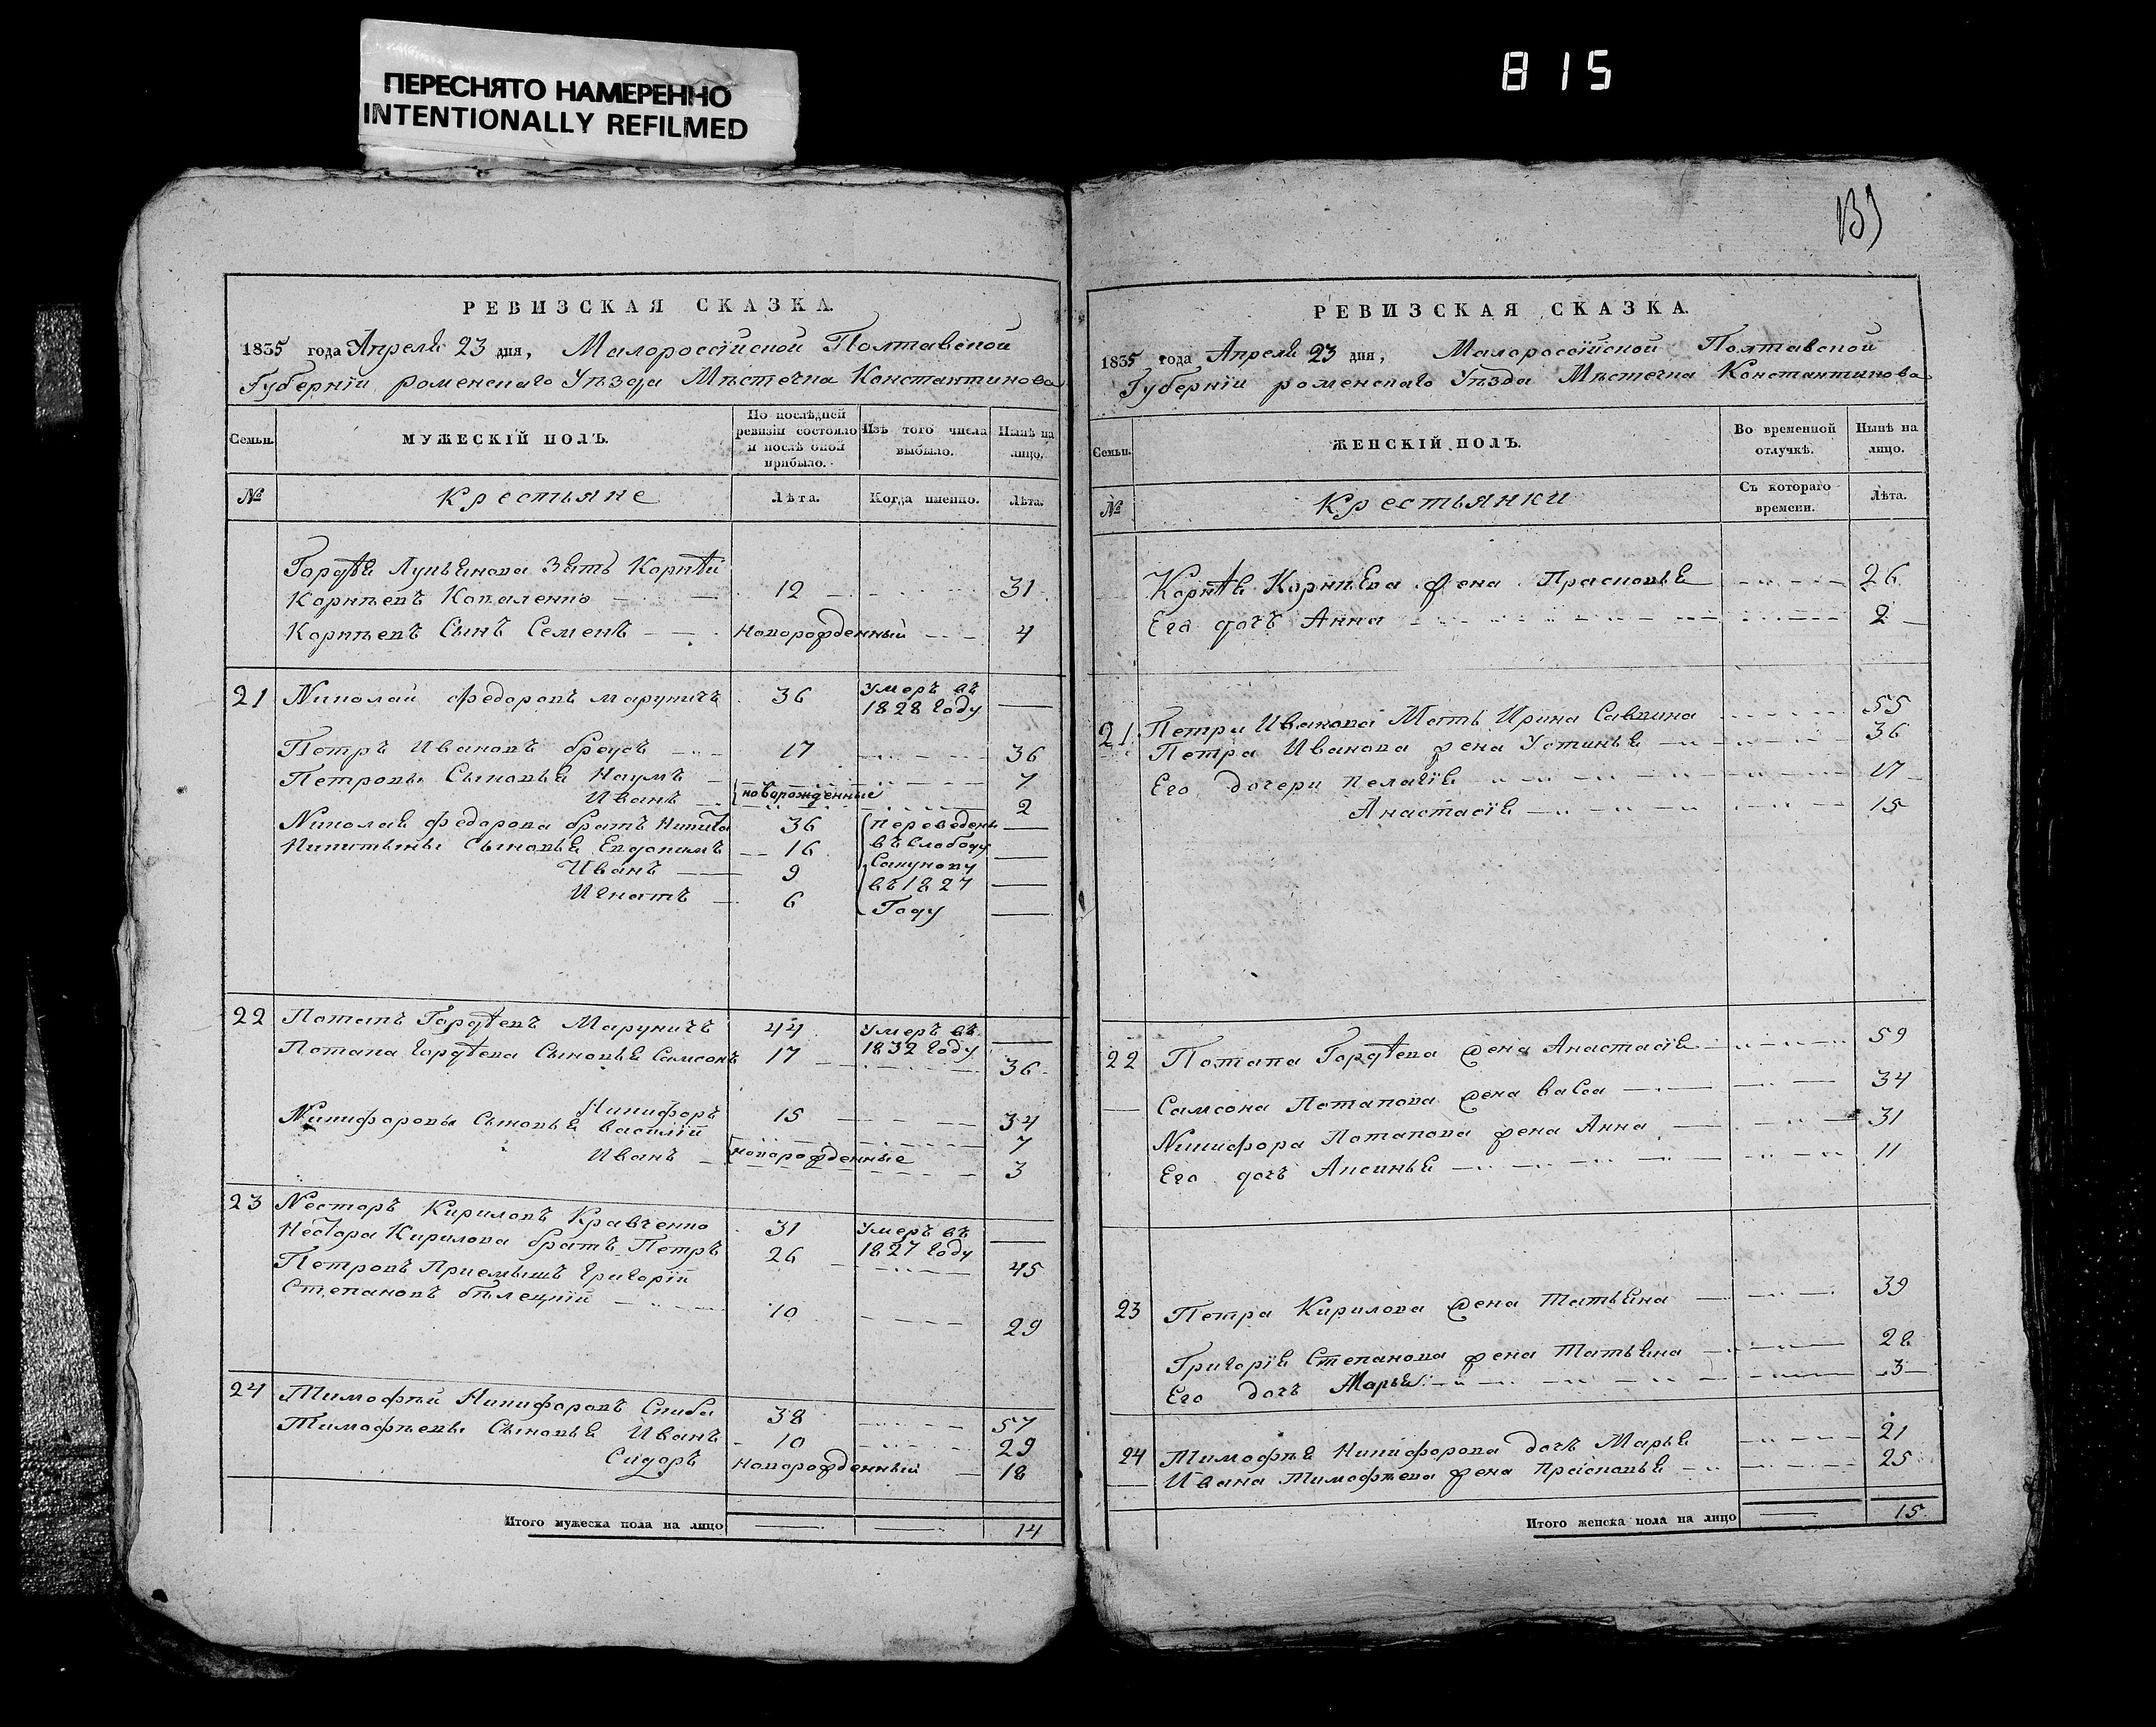 ПЕРЕСНЯТО НАМЕРЕННО
INTENTIONALLY REFILMED
815
РЕВИЗСКАЯ СКАЗКА.
1835 года Апреля 23 дня, Малороссійской Полтавской
Губерніи роменскаго Уѣзда Мѣстечка Константинова
Семьи.
МУЖЕСКІЙ ПОЛЪ.
По послѣдней ревизіи состояло и послѣ оной прибыло.
Изъ того числа выбыло.
Нынѣ на лицо.
№
Крестьяне
Лѣта.
Когда именно.
Лѣта.
Гордѣя Лукьянова Зять Корнѣй
Корнѣевъ Коваленко 12 31
Корнѣевъ Сынъ Семенъ новорожденный 4
21 Николай Федоровъ Маруничъ 36 Умеръ въ 1828 году
Петръ Ивановъ броусъ 17 36
Петровы Сыновья Наумъ 7
Иванъ новорожденные 2
Николая Федорова братъ Никита 36 переведены
Никитины Сыновья Евдокимъ 16 въ Слободу
Иванъ 9 въ 1827
Игнатъ 6 Году
22 Потапъ Гордѣевъ Маруничъ 44 Умеръ въ 1832 году
Потапа Гордѣева Сыновья Самсонъ 17 36
Никифоръ 15 34
Никифоровы Сыновья василій 7
Иванъ новорожденные 3
23 Несторъ Кириловъ Кравченко 31 Умеръ въ 1827 году
Нестора Кирилова братъ Петръ 26 45
Петровъ Приемышъ григорій
Степановъ бѣлецкій 10 29
24 Тимофѣй Никифоровъ Скиба 38 57
Тимофѣевы Сыновья Иванъ 10 29
Сидоръ новорожденный 18
Итого мужеска пола на лицо 14
РЕВИЗСКАЯ СКАЗКА.
1835 года Апреля 23 дня, Малороссійской Полтавской
Губерніи роменскаго Уѣзда Мѣстечка Константинова
Семьи.
ЖЕНСКІЙ ПОЛЪ.
Во временной отлучкѣ.
Нынѣ на лицо.
№
Крестьянки
Съ котораго времени.
Лѣта.
Корнѣя Корнѣева жена Прасковья 26
Его дочь Анна 2
21 Петра Иванова Мать Ирина Саввина 55
Петра Иванова жена Устинья 36
Его дочери пелагія 17
Анастасія 15
22 Потапа Гордѣева жена Анастасія 59
Самсона Потапова жена васса 34
Никифора Потапова жена Анна 31
Его дочь Аксинья 11
23 Петра Кирилова жена татьяна 39
Григорія Степанова жена татьяна 28
Его дочь Марья 3
24 Тимофѣя Никифорова дочь Марья 21
Ивана Тимофѣева жена Прасковья 25
Итого женска пола на лицо 15